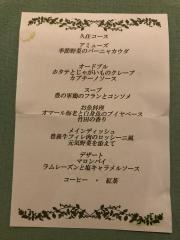 久住コース
アミューズ
季節野菜のバーニャカウダ
オードブル
ホタテとじゃがいものクレープ
カプチーノソース
スープ
豊の軍鶏のフランとコンソメ
お魚料理
オマール海老と白身魚のブイヤベース
竹田の香り
メインディッシュ
豊後牛フィレ肉のロッシーニ風
元気野菜を添えて
デザート
マロンパイ
ラムレーズンと塩キャラメルソース
コーヒー ・ 紅茶